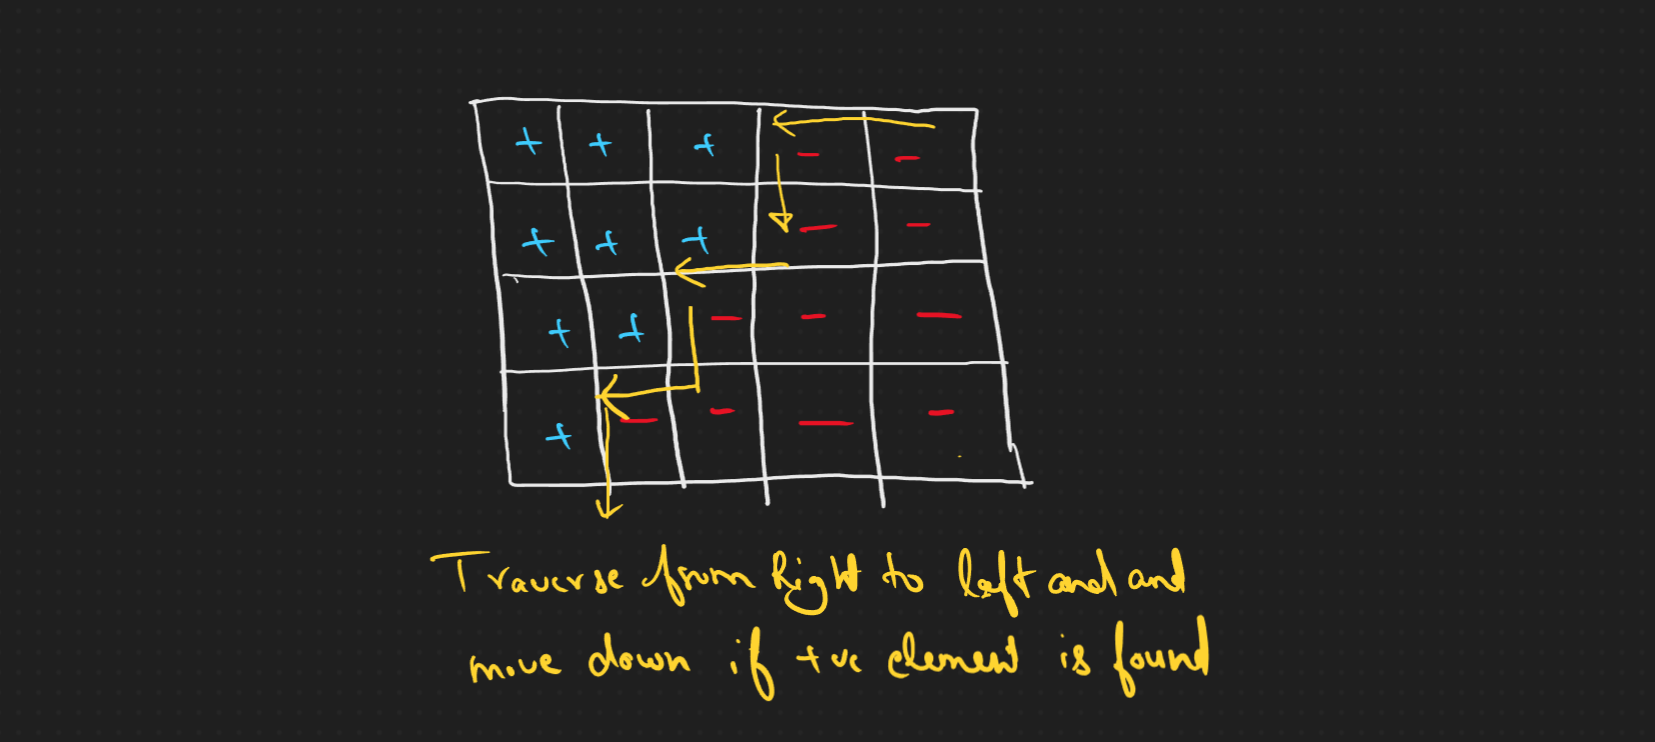 + + + - -
+ + + - -
+ + - - -
+ - - - -
Traverse from Right to left and and
move down if +ve element is found